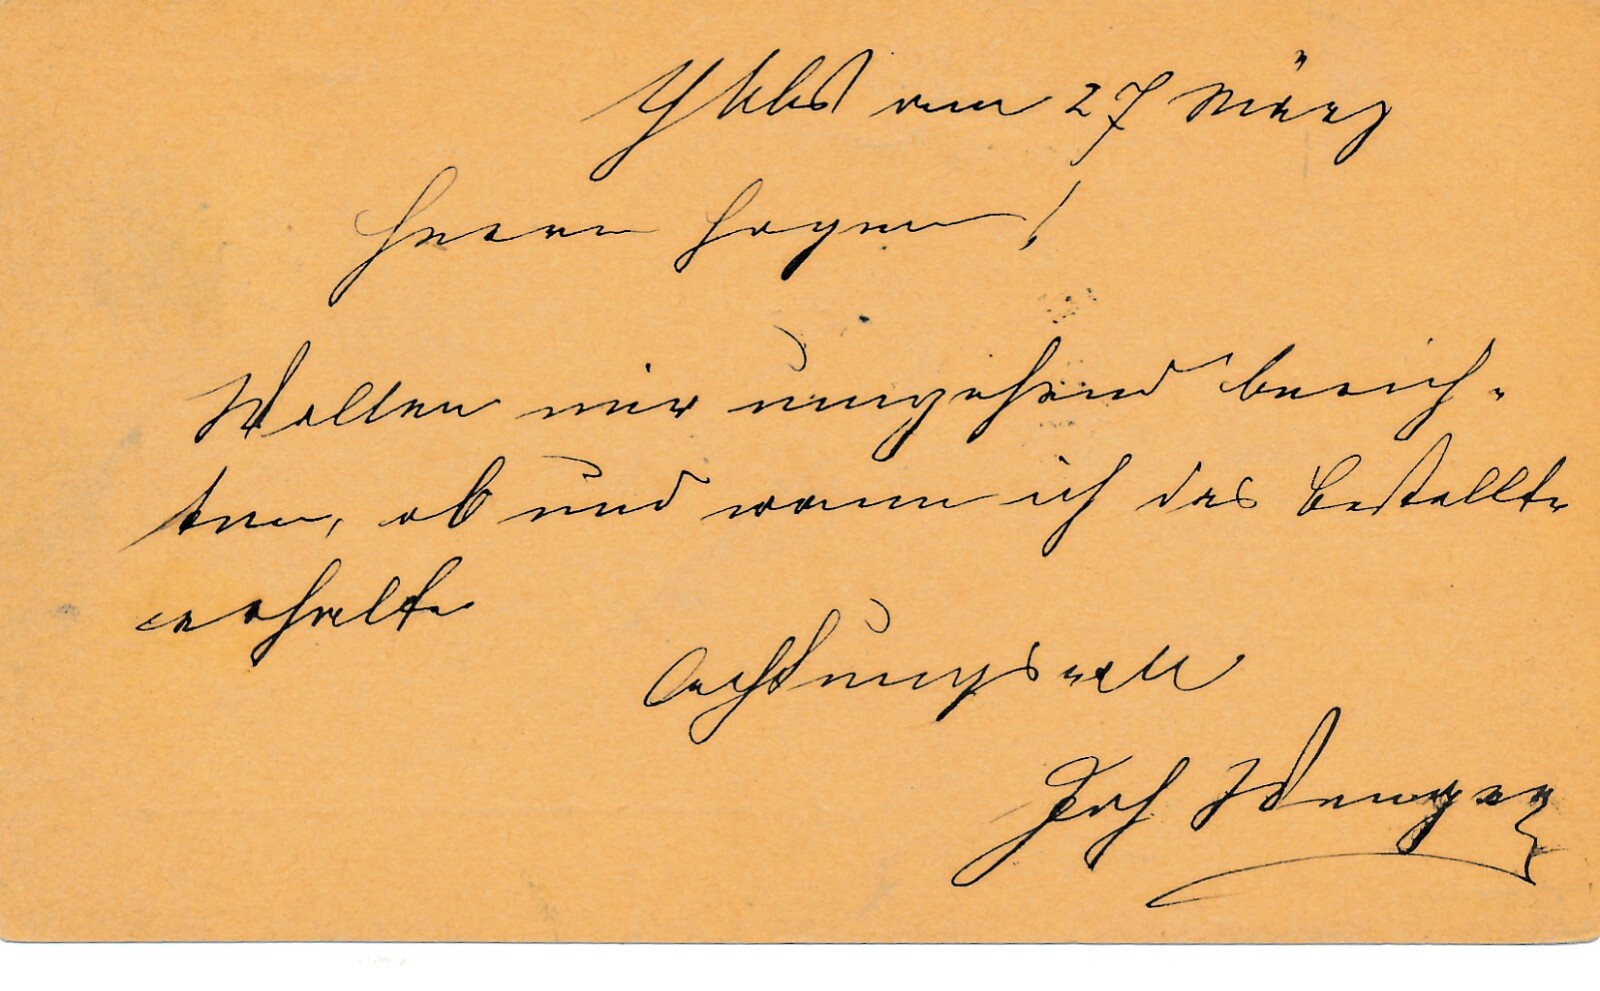 Ybbs am 27 März
Herrn Hogen!
Wollen mir umgehend berich-
ten, ob und wann ich das bestellte
erhalte
Achtungsvoll
Joh Wenger